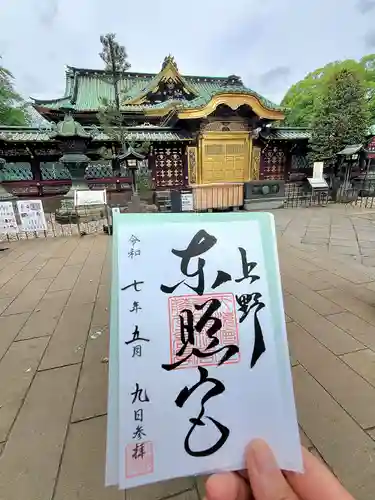 上野
東照宮
令和七年五月九日参拝